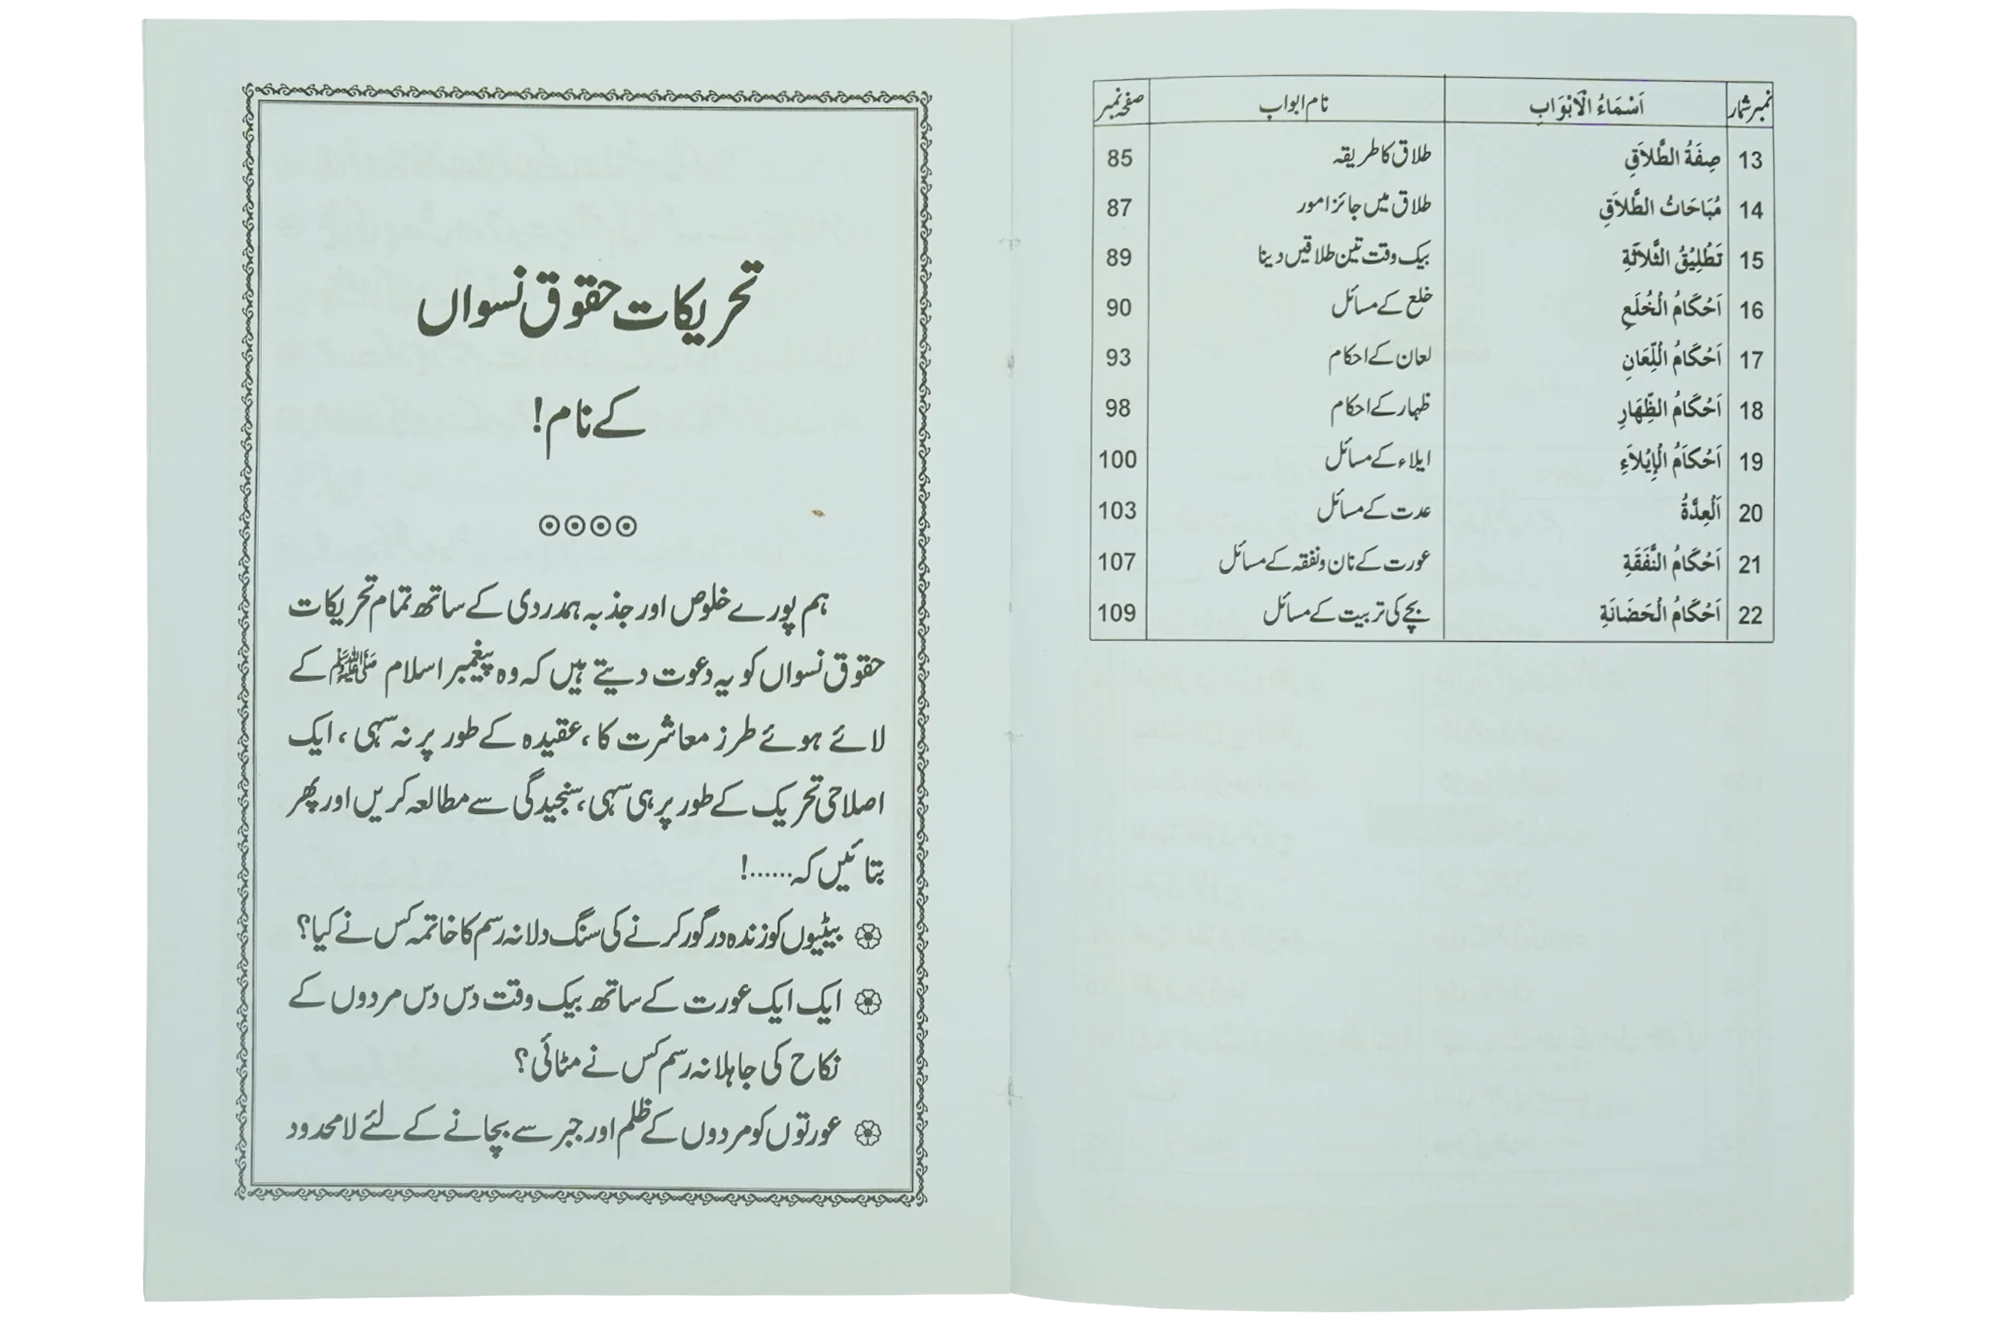 نمبر شمار | اَسْمَاءُ الْاَبْوَابِ | نام ابواب | صفحہ نمبر
13 | صِفَةُ الطَّلاَقِ | طلاق کا طریقہ | 85
14 | مُبَاحَاتُ الطَّلاَقِ | طلاق میں جائز امور | 87
15 | تَطْلِيْقُ الثَّلاَثَةِ | بیک وقت تین طلاقیں دینا | 89
16 | اَحْكَامُ الْخُلَعِ | خلع کے مسائل | 90
17 | اَحْكَامُ اللِّعَانِ | لعان کے احکام | 93
18 | اَحْكَامُ الظِّهَارِ | ظہار کے احکام | 98
19 | اَحْكَامُ الْإِيْلاَءِ | ایلاء کے مسائل | 100
20 | اَلْعِدَّةُ | عدت کے مسائل | 103
21 | اَحْكَامُ النَّفَقَةِ | عورت کے نان و نفقہ کے مسائل | 107
22 | اَحْكَامُ الْحَضَانَةِ | بچے کی تربیت کے مسائل | 109
تحریکات حقوق نسواں
کے نام!
ہم پورے خلوص اور جذبہ ہمدردی کے ساتھ تمام تحریکات
حقوق نسواں کو یہ دعوت دیتے ہیں کہ وہ پیغمبر اسلام ﷺ کے
لائے ہوئے طرز معاشرت کا، عقیدہ کے طور پر نہ سہی، ایک
اصلاحی تحریک کے طور پر ہی سہی، سنجیدگی سے مطالعہ کریں اور پھر
بتائیں کہ......!
بیٹیوں کو زندہ درگور کرنے کی سنگ دلانہ رسم کا خاتمہ کس نے کیا؟
ایک ایک عورت کے ساتھ بیک وقت دس دس مردوں کے
نکاح کی جاہلانہ رسم کس نے مٹائی؟
عورتوں کو مردوں کے ظلم اور جبر سے بچانے کے لئے لامحدود